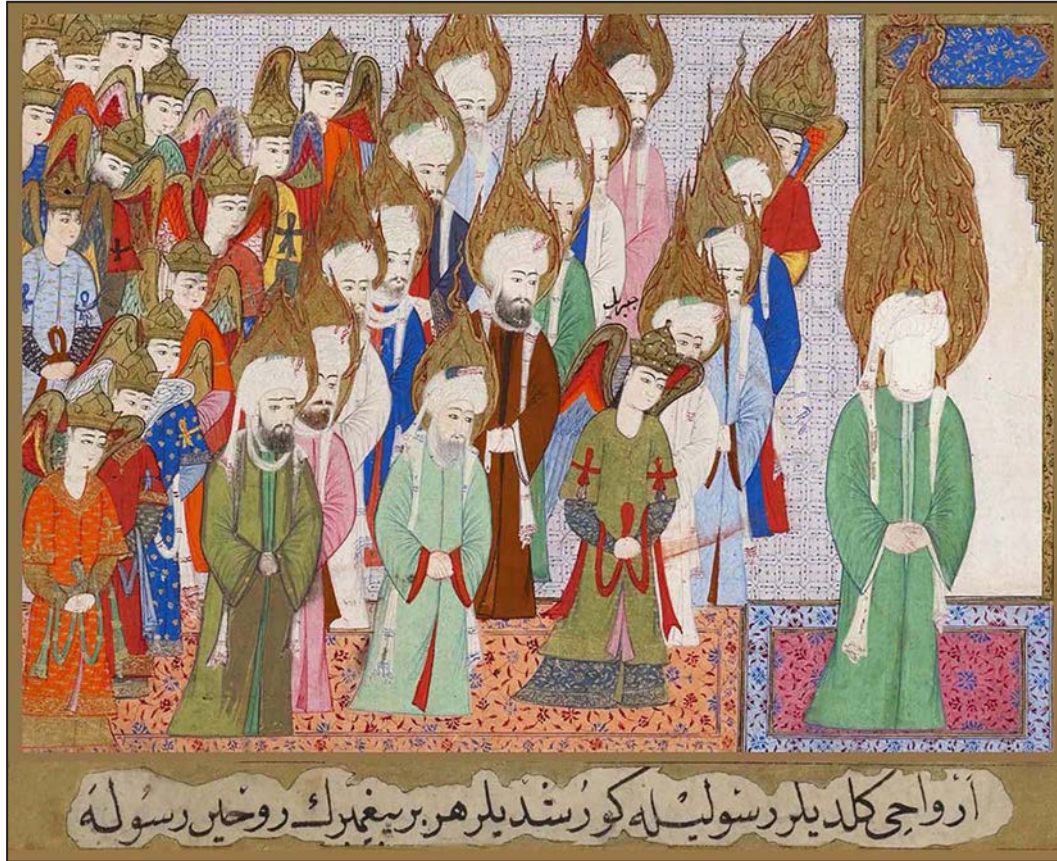 جبریل
ارواحی کلدیلر رسولیله کورشدیلر هر بر پیغمبرك روحین رسوله